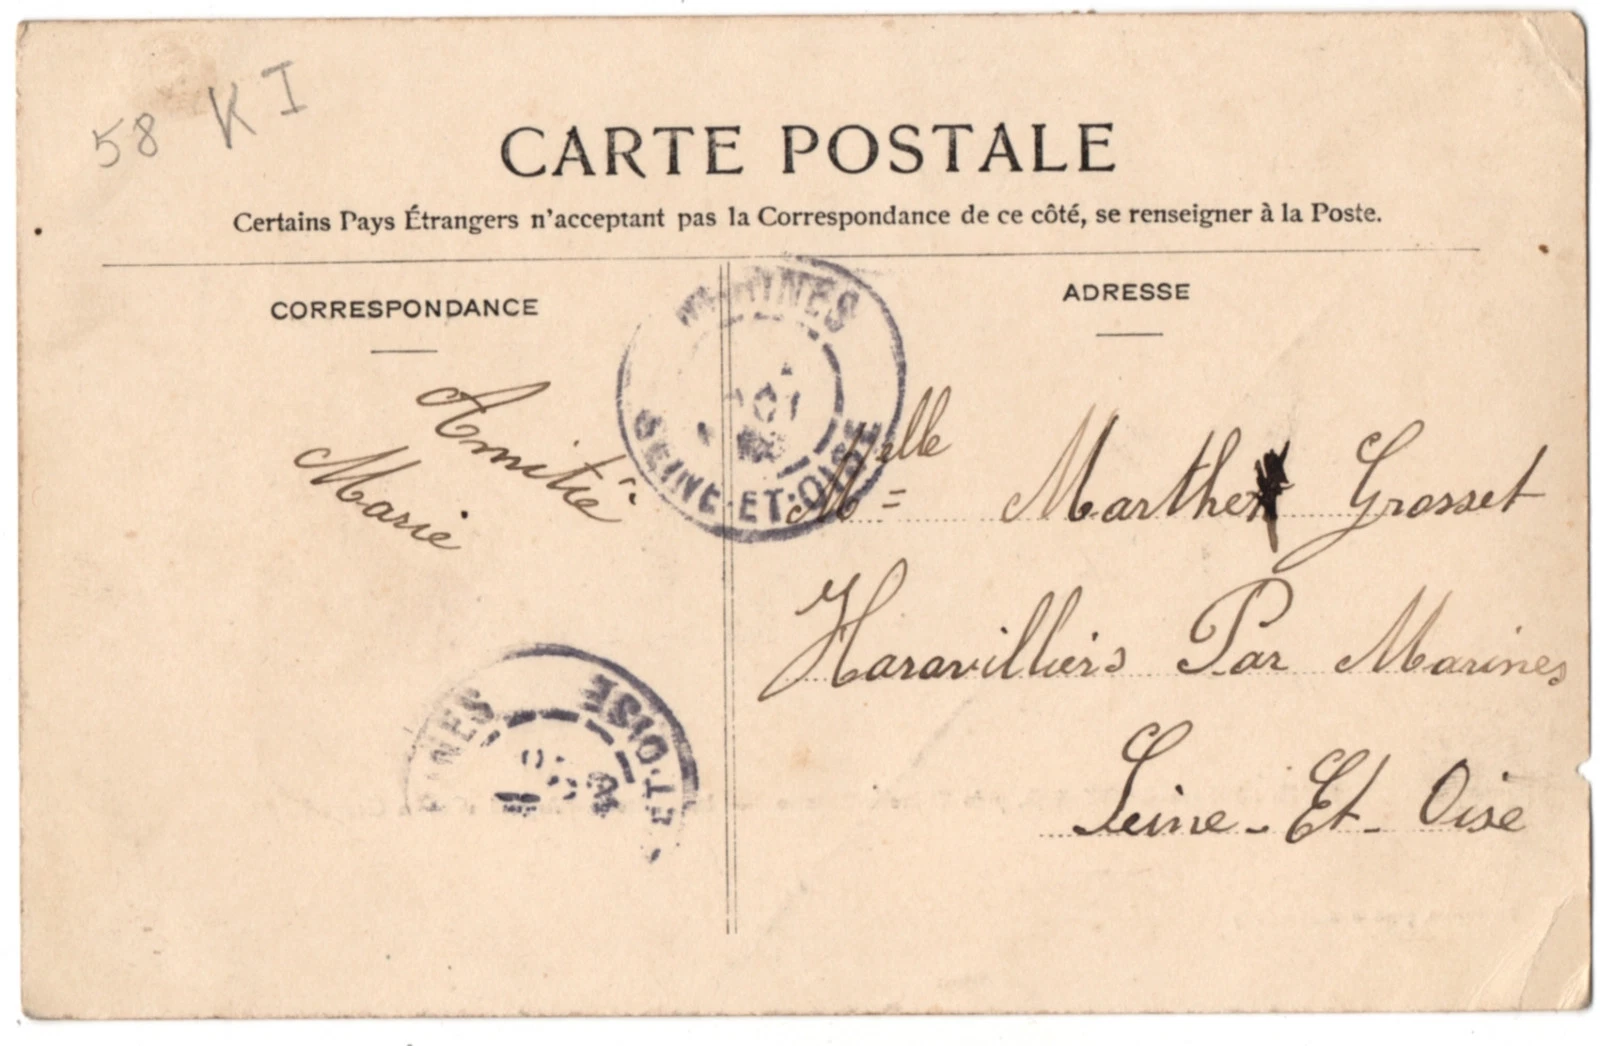 58 K I
CARTE POSTALE
Certains Pays Étrangers n'acceptant pas la Correspondance de ce côté, se renseigner à la Poste.
CORRESPONDANCE
Amitié
Marie
ADRESSE
Melle Marthe Grosset
Haravilliers Par Marines
Seine - Et - Oise
MARINES
SEINE-ET-OISE
INES
ET-OISE